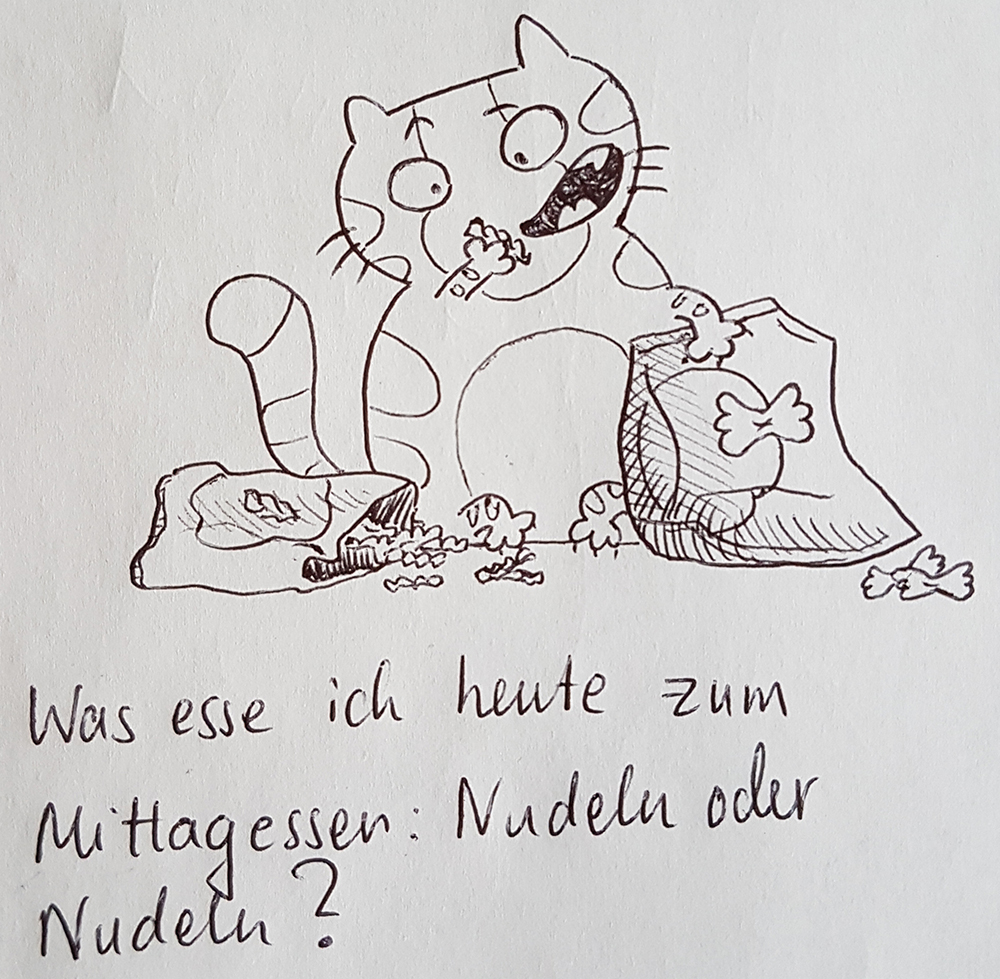 Was esse ich heute zum
Mittagessen: Nudeln oder
Nudeln?